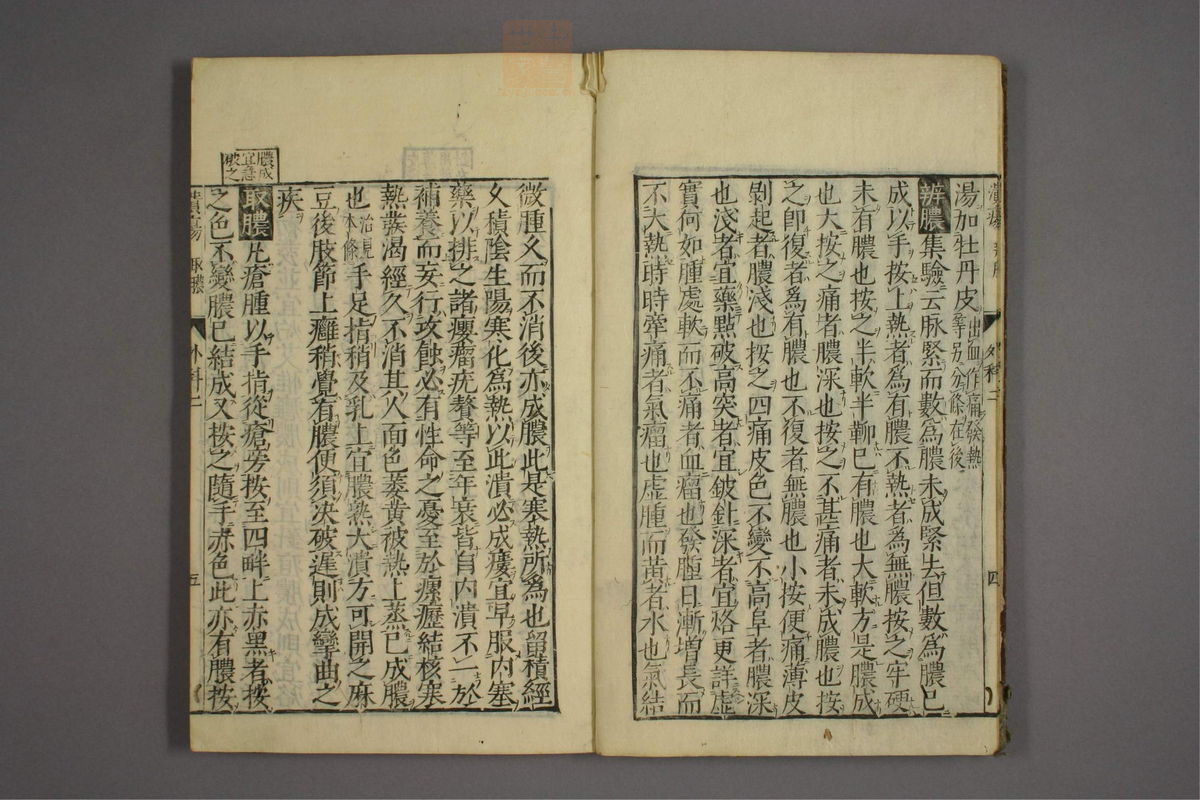 潰瘍 辨膿
外科二
四
湯加牡丹皮出血作痛發熱等另分條在後
辨膿集驗云脉緊而數爲膿未成緊去但數爲膿已
成以手按上熱者爲有膿不熱者爲無膿按之牢硬
未有膿也按之半軟半鞕已有膿也大軟方是膿成
也大按之痛者膿深也按之不甚痛者未成膿也按
之即復者爲有膿也不復者無膿也小按便痛薄皮
剝起者膿淺也按之四痛皮色不變不高阜者膿深
也淺者宜藥點破高突者宜鈹針深者宜烙更詳虛
實何如腫處軟而不痛者血瘤也發腫日漸增長而
不大熱時時牽痛者氣瘤也虛腫而黃者水也氣結
微腫久而不消後亦成膿此是寒熱所爲也留積經
久積陰生陽寒化爲熱以此潰必成瘻宜早服內塞
藥以排之諸癭瘤疣贅等至年衰皆自內潰不一於
補養而妄行攻蝕必有性命之憂至於瘰癧結核塞
熱發渴經久不消其人面色萎黃被熱上蒸已成膿
也治視本條手足指稍及乳上宜膿熟大潰方可開之麻
豆後肢節上癰稍覺有膿便須决破遲則成攣曲之
疾
膿成宜急破之
取膿凡瘡腫以手指從瘡旁按至四畔上赤黑者按
之色不變膿已結成又按之隨手赤色此亦有膿按
潰瘍 取膿
外科二
五